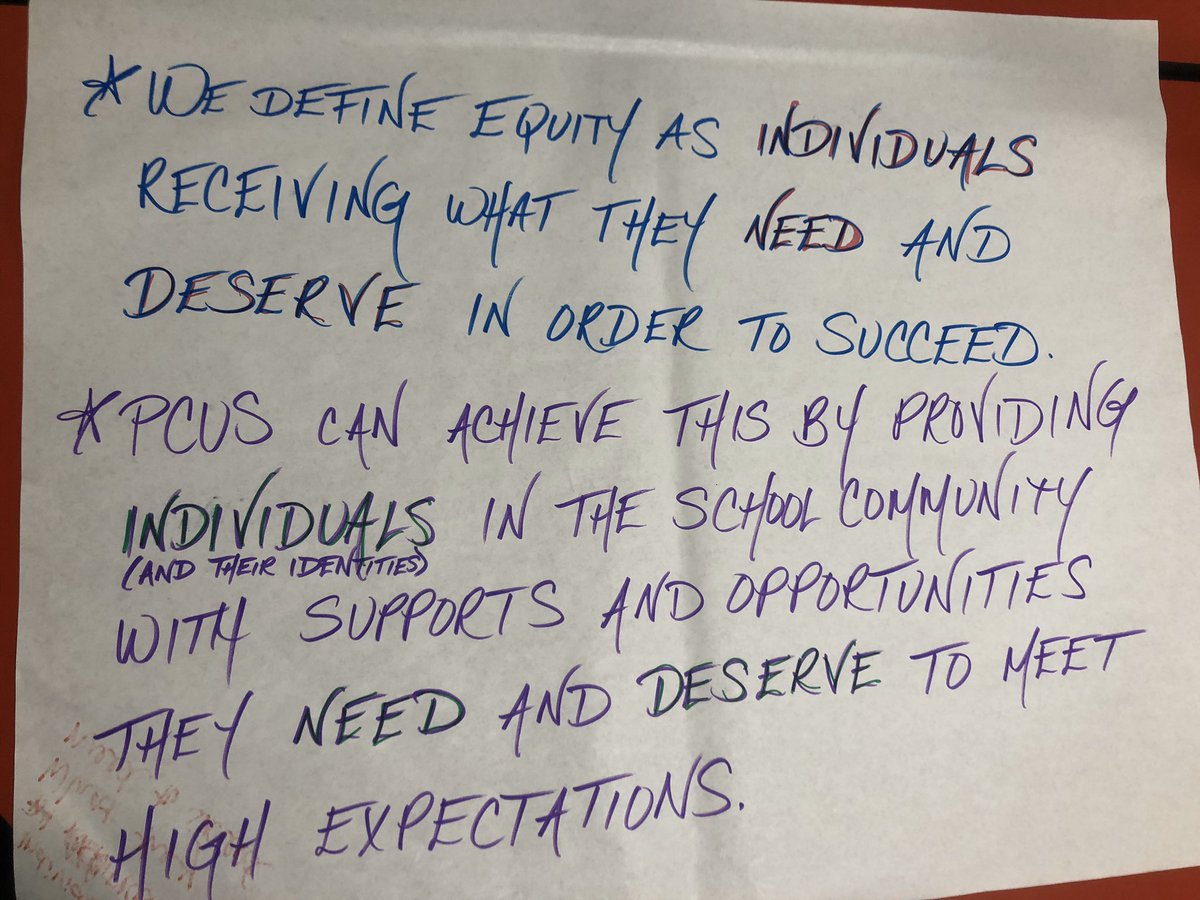 * WE DEFINE EQUITY AS INDIVIDUALS
RECEIVING WHAT THEY NEED AND
DESERVE IN ORDER TO SUCCEED.
* PCUS CAN ACHIEVE THIS BY PROVIDING
INDIVIDUALS IN THE SCHOOL COMMUNITY
(AND THEIR IDENTITIES)
WITH SUPPORTS AND OPPORTUNITIES
THEY NEED AND DESERVE TO MEET
HIGH EXPECTATIONS.